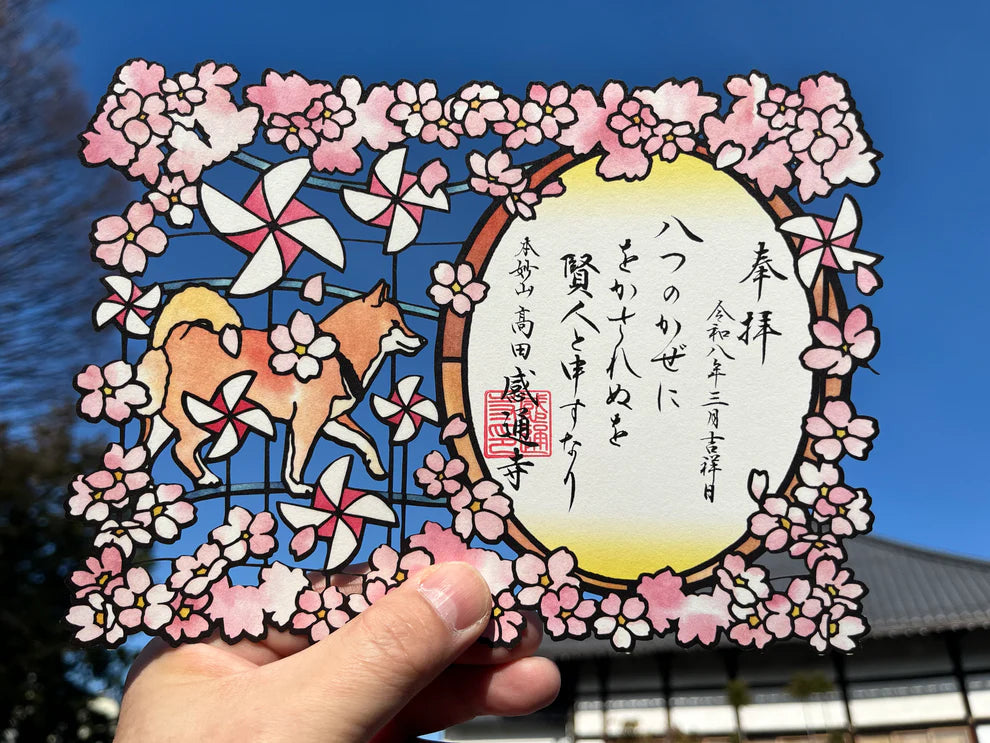 奉拝
令和八年三月吉祥日
八つのかぜに
をかされぬを
賢人と申すなり
本妙山 高田感通寺